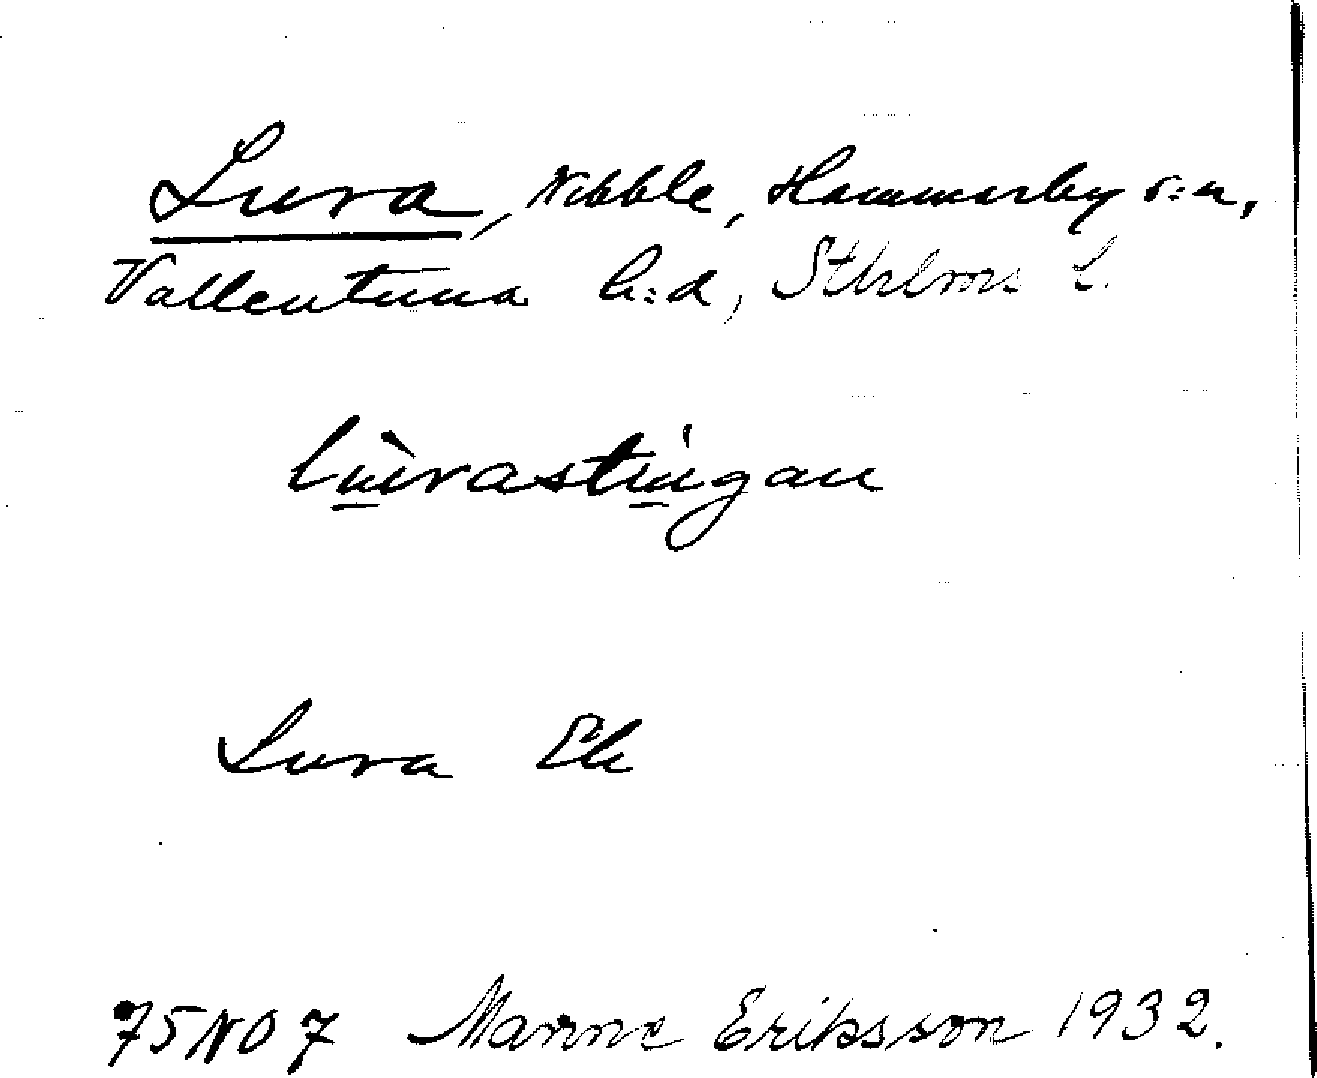 Lura, Nibble, Hammarby s:n,
Vallentuna h:d, Sthlms l.
lùrastíngan
Lura Ek
75 NO 7 Manne Eriksson 1932.